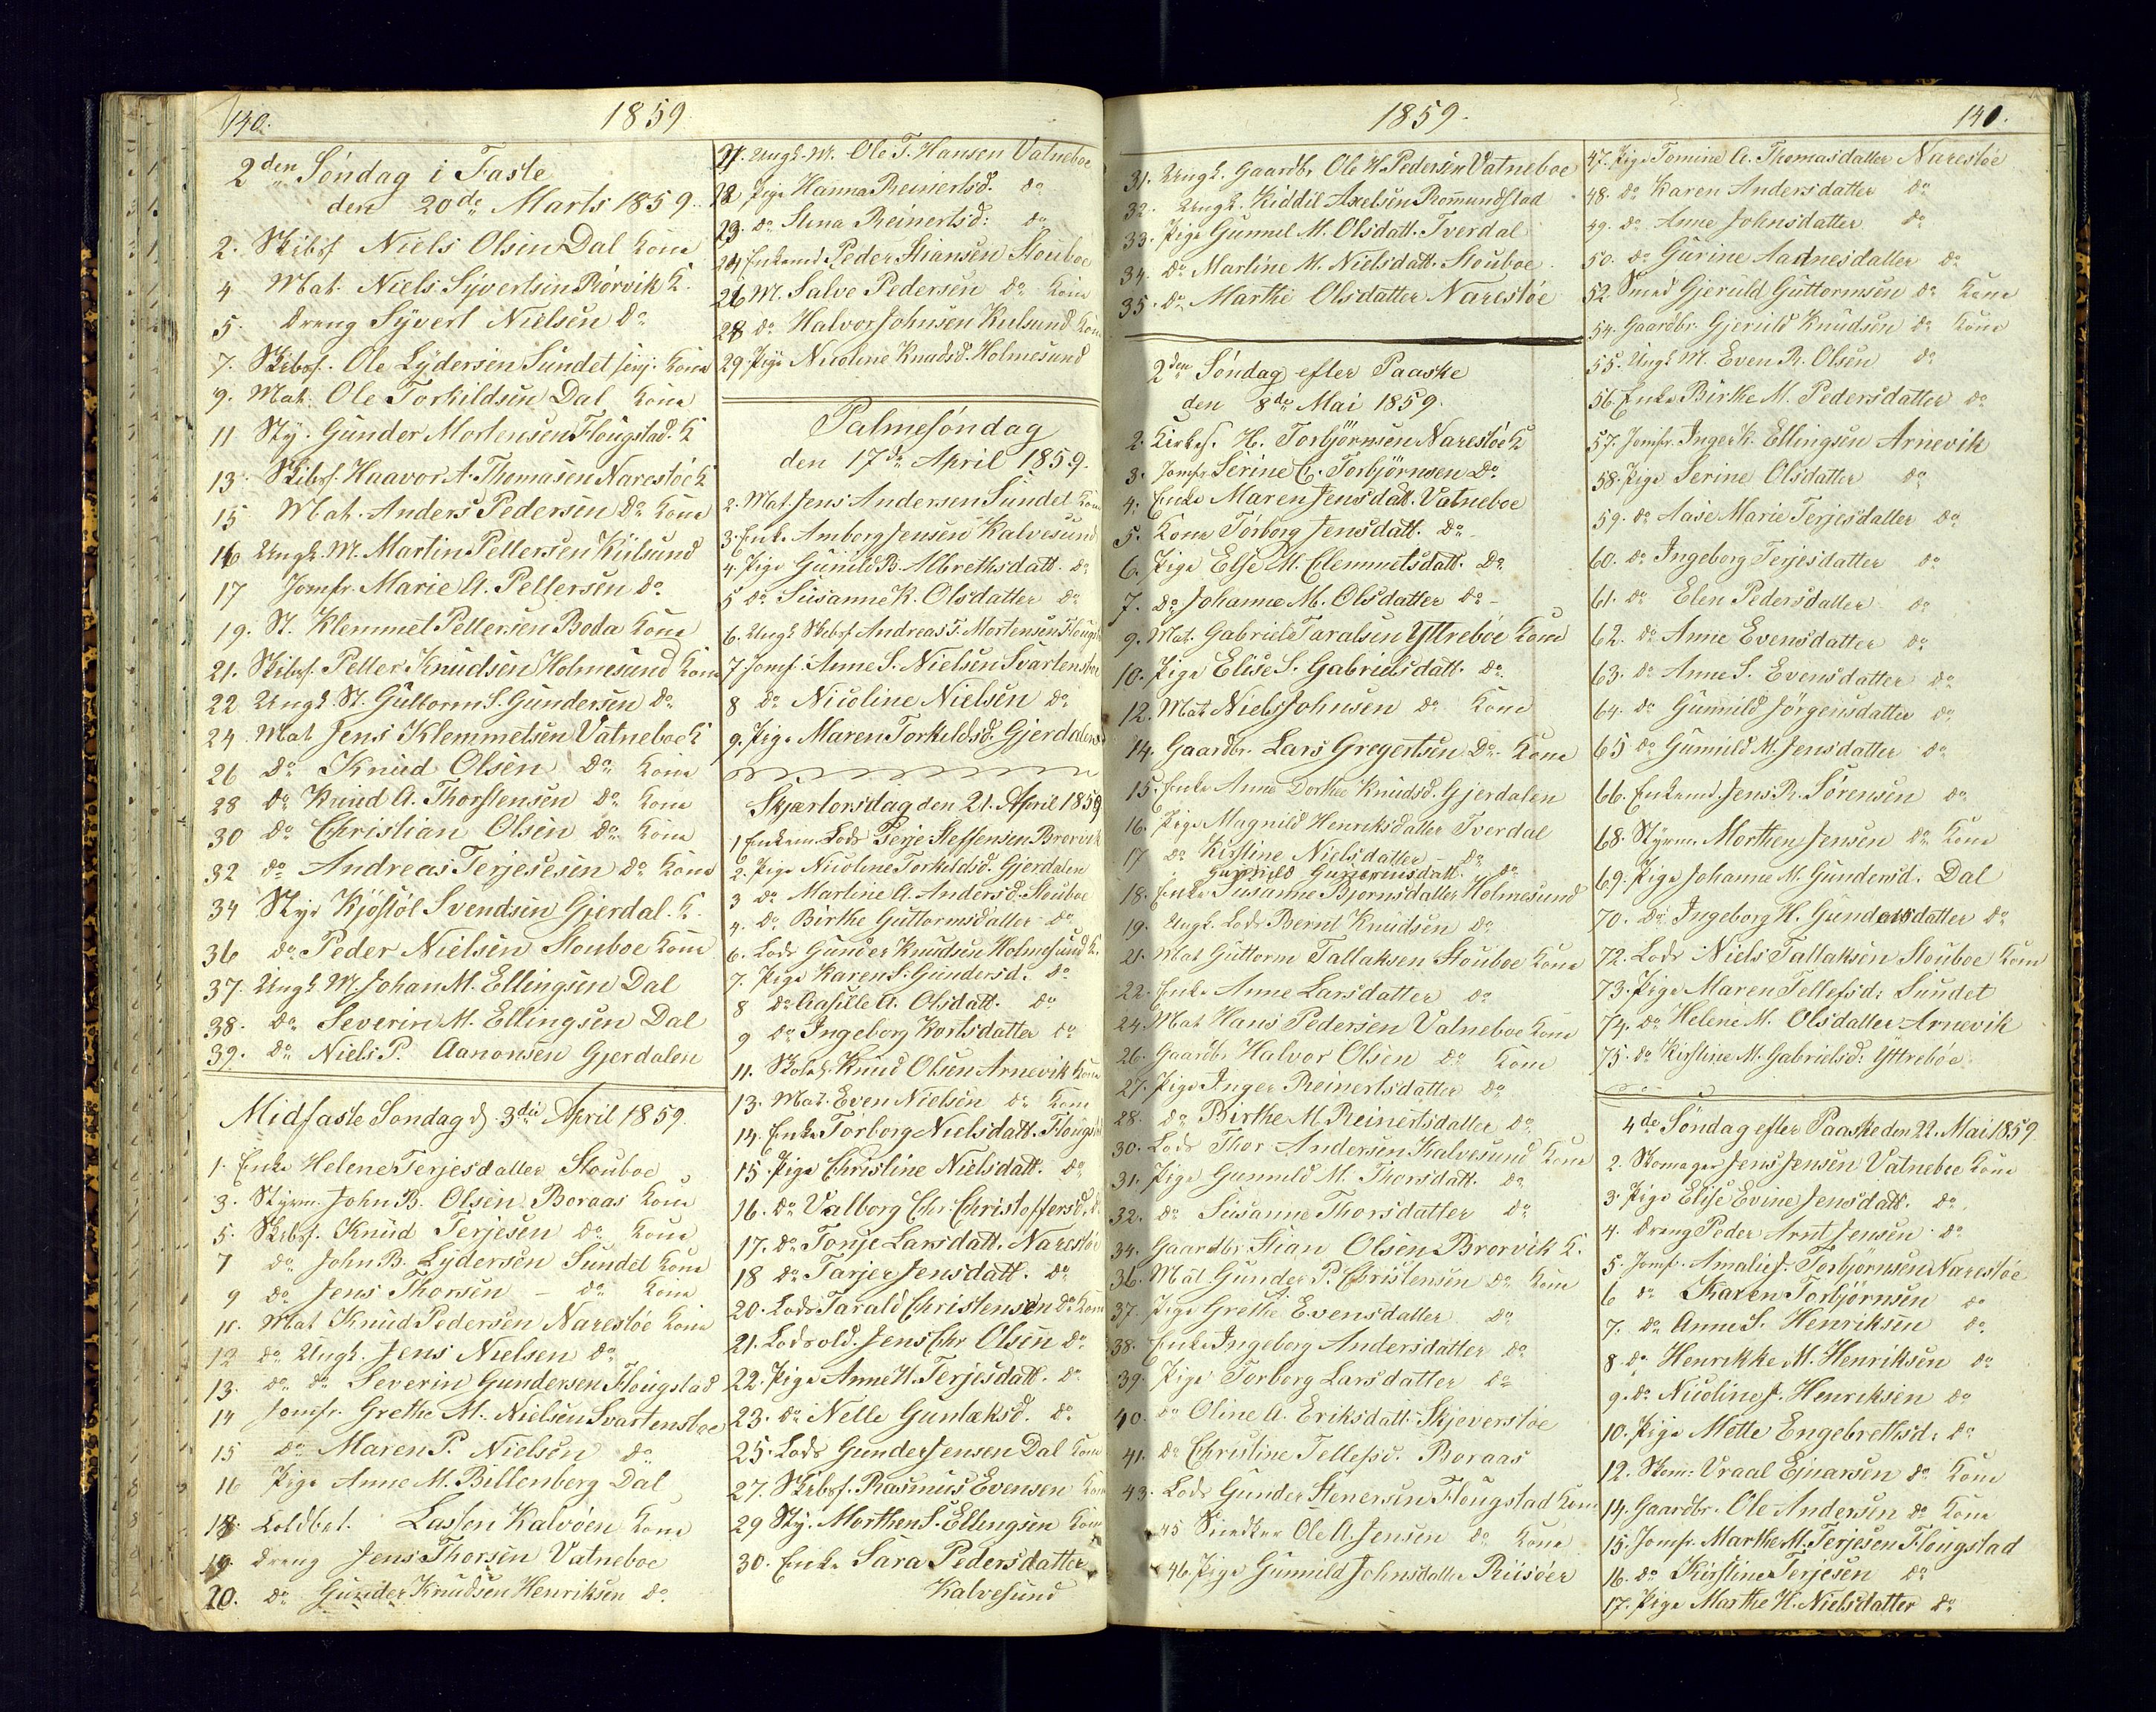 140.
1859
2den Söndag i Faste
den 20de Marts 1859.
2. Skibsf. Niels Olsen Dal Kone
4 Mat. Niels Syvertsen Rörvik K.
5. Dreng Syvert Nielsen Do
7. Skibsf. Ole Lydersen Sundet senj. Kone
9. Mat. Ole Torkildsen Dal Kone
11 Sty. Gunder Mortensen Flougstad. K
13. Skibsf. Haavor A. Thomasen Narestöe K
15 Mat. Anders Pedersen Do Kone
16 Ungk. M. Martin Pettersen Kulsund
17 Jomfr. Marie A. Pettersen do
19. St. Klemmet Pettersen Boda Kone
21. Skibsf. Petter Knudsen Holmesund Kone
22 Ungk. St. Guttorm S. Gundersen do
24. Mat Jens Klemmetsen Vatneboe K
26 do Knud Olsen do Kone
28 do Knud A. Thorstensen do Kone
30 do Christian Olsen do Kone
32 do Andreas Terjesesen do Kone
34 Styr Kjöstöl Svendsen Gjerdal. K.
36 do Peder Nielsen Stouboe Kone
37. Ungk. M. Johan M. Ellingsen Dal
38. do Severin M. Ellingsen Dal
39. do Niels P. Aanonsen Gjerdalen
Midfaste Sondag d. 3die April 1859.
1. Enke Helene Terjesdatter Stouboe
3. Styrm. John B. Olsen Boraas Kone
5. Skibsf. Knud Terjesen do Kone
7 do John B. Lydersen Sundet Kone
9 do Jens Thorsen – do Kone
11. Mat Knud Pedersen Narestöe Kone
12 do Ungk. Jens Nielsen do
13. do do Severin Gundersen Flougstad
14 Jomfr. Grethe M. Nielsen Svartensboe
15 do Maren P. Nielsen do
16 Pige Anne M. Billenberg Dal
18. Toldbet. Lassen Kalvöen Kone
19 Dreng Jens Thorsen Vatneboe
20. do Gunder Knudsen Henriksen do
21. Ungk. M. Ole T. Hansen Vatneboe
22 Pige Hanna Reinertsd. do
23. do Stina Reinertsd: do
24 Enkemd Peder Stiansen Stouboe
26 M. Salve Pedersen do Kone
28 do Halvor Johnsen Kulsund Kone
29. Pige Nicoline Knudsd. Holmesund
Palmesöndag
den 17de April 1859.
2. Mat. Jens Andersen Sundet Kone
3. Enke Amborg Jensen Kalvesund
4. Pige Gunild B. Albrethsdatt. do
5 do Susanne K. Olsdatter do
6. Ungk Skibsf. Andreas T. Mortensen Flougst
7 Jomf. Anne S. Nielsen Svartensboe
8 do Nicoline Nielsen do
9. Pige Maren Torkildsd. Gjerdalen
Skjærtorsdag den 21. April 1859
1 Enkem. Lods Terje Steffensen Brorvik
2. Pige Nicoline Torkildsd. Gjerdalen
3 do Martine A. Andersd. Stouboe
4. do Birthe Guttormsdatter do
6. Lods Gunder Knudsen Holmesund K.
7. Pige Karen S. Gundersd. do
8 do Aasille A. Olsdatt. do
9 do Ingeborg Korlsdatter do
11. Skoleh. Knud Olsen Arnevik Kone
13. Mat. Even Nielsen do Kone
14. Enke Torborg Nielsdatt. Flougstad
15 Pige Christine Nielsdatt. do
16. do Valborg Chr. Christoffersd. do
17. do Tonje Larsdatt. Narestöe
18 do Tarjer Jensdatt. do
20. Lods Tarald Christensen do Kone
21. Lodsold. Jens Chr Olsen do
22. Pige Anne H. Terjesdatt. do
23. do Nelle Gunlæksd. do
25. Lods Gunder Jensen Dal Kone
27. Skibsf. Rasmus Evensen Kone
29 Sty. Morthen S. Ellingsen Kone
30. Enke Sara Pedersdatter
Kalvesund
1859.
140.
31. Ungk. Gaardbr Ole H. Pedersen Vatneboe
32. Ungk. Kiddil Axelsen Romundstad
33. Pige Gunnil M. Olsdatt. Tverdal
34. do Martine M. Nielsdatt. Stouboe
35. do Marthe Olsdatter Narestöe
2den Söndag efter Paaske
den 8de Mai 1859.
2. Kirkes. H. Torbjörnsen Narestöe K
3. Jomfr Serine C. Torbjörnsen do
4. Enke Maren Jensdatt. Vatneboe
5. Kone Torborg Jensdatt. do
6. Pige Else M. Clemmetsdatt. Do
7. Do Johanne M. Olsdatter do –
9. Mat. Gabriel Taralsen Yttreböe Kone
10. Pige Elise S. Gabrielsdatt. do
12. Mat Niels Johnsen do Kone
14. Gaardbr. Lars Gregertsen Do. Kone
15. Enke Anne Dorthea Knudsd. Gjerdalen
16. Pige Magnild Henriksdatter Tverdal
17 do Kirstine Nielsdatter do
Gunnild Guttormsdatt. do
18. Enke Susanne Bjornsdatter Holmesund
19. Ungk. Lods Bernt Knudsen do
21. Mat Guttorm Tallaksen Stouboe Kone
22. Enke Anne Larsdatter do
24. Mat Hans Pedersen Vatneboe Kone
26. Gaardbr Halvor Olsen do Kone
27. Pige Inger Reinertsdatter do
28. do Birthe M. Reinertsdatter do
30. Lods Thor Andersen Kalvesund Kone
31. Pige Gunnild M. Thorsdatt. do
32. do Susanne Thorsdatter do
34. Gaardbr. Stian Olsen Brorvik K.
36. Mat. Gunder P. Christensen do Kone
37. Pige Grethe Evensdatter do
38. Enke Ingeborg Andersdatter do
39. Pige Torborg Larsdatter do
40. do Oline A. Eriksdatt. Skjeverstöe
41. do Christine Tellefsd. Boraas
43. Lods Gunder Stenersen Flougstad Kone
45 Snedker Ole A. Jensen do Kone
46. Pige Gunnild Johnsdatter Riisöer
47. Pige Tomine A. Thomasdatter Narestöe
48. do Karen Andersdatter do
49. do Anne Johnsdatter do
50. do Gurine Aadnesdatter do
52. Smed Gjeruld Guttormsen do Kone
54. Gaardbr. Gjeruld Knudsen do Kone
55. Ungk M. Even R. Olsen do
56. Enke Birthe M. Pedersdatter do
57. Jomfr. Inger K. Ellingsen Arnevik
58. Pige Serine Olsdatter do
59. do Aase Marie Terjesdatter do
60. do Ingeborg Terjesdatter do
61. do Elen Pedersdatter do
62. do Anne Evensdatter do
63. do Anne S. Evensdatter do
64. do Gunnild Jörgensdatter do
65 do Gunnild M. Jensdatter do
66. Enkemd. Jens R. Sörensen do
68. Styrm. Morthen Jensen do Kone
69. Pige Johanne M. Gundersd. Dal
70. do Ingeborg H. Gundersdatter do
72. Lods Niels Tallaksen Stouboe Kone
73. Pige Maren Tellefsd: Sundet
74. do Helene M. Olsdatter Arnevik
75. do Kirstine M. Gabrielsd: Yttreböe
4de Söndag efter Paaske den 22. Mai 1859
2. Skomager Jens Jensen Vatneboe Kone
3. Pige Elise Evine Jensdatt. do
4. Dreng Peder Arnt Jensen do
5. Jomf. Amalie J. Torbjörnsen Narestöe
6 do Karen Torbjörnsen do
7. do Anne S. Henriksen do
8. do Henrikke M. Henriksen do
9. do Nicoline J. Henriksen do
10. Pige Mette Engebrethsd. do
12. Skom: Vraal Ejnarsen do Kone
14. Gaardbr. Ole Andersen do Kone
15. Jomf. Marthe M. Terjesen Flougstad
16. do Kirstine Terjesen do
17. Pige Marthe H. Nielsdatter do